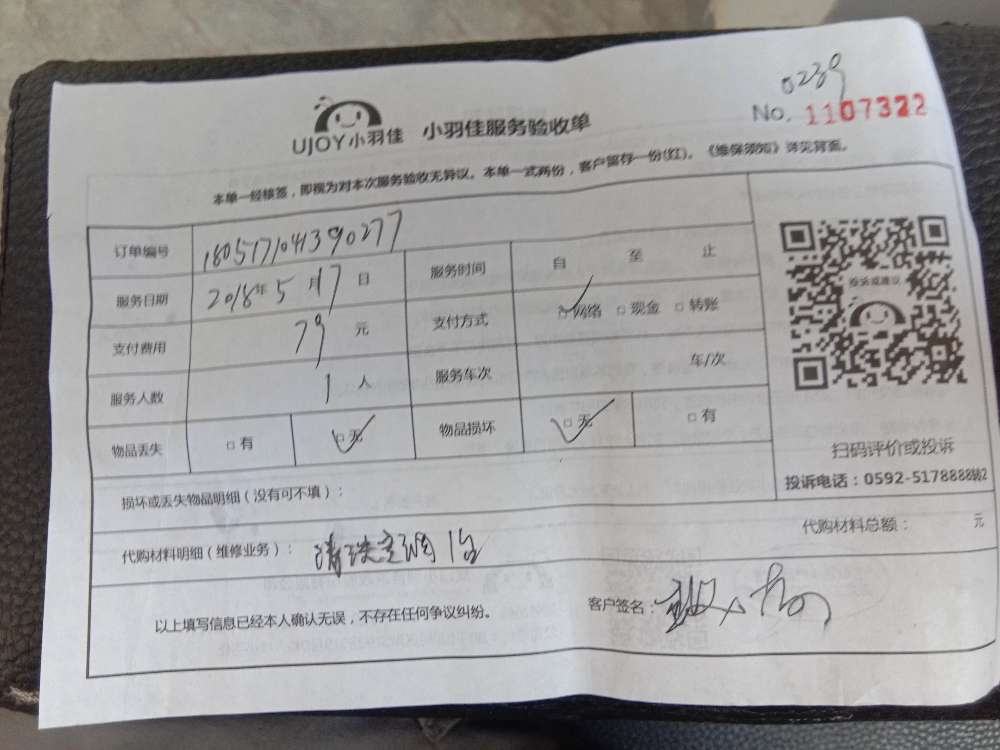 0239
UJOY小羽佳 小羽佳服务验收单 No. 1107322
本单一经核签，即视为对本次服务验收无异议。本单一式两份，客户留存一份(红)。《维保须知》详见背面。
订单编号 1805171041390277
服务日期 2018年5月17日 服务时间 自 至 止
支付费用 79元 支付方式 ☑网络 □现金 □转账
服务人数 1人 服务车次 车/次
物品丢失 □有 ☑无 物品损坏 ☑无 □有
投诉或建议
扫码评价或投诉
投诉电话：0592-5178888转2
损坏或丢失物品明细（没有可不填）：
代购材料明细（维修业务）：清洗空调1台 代购材料总额： 元
以上填写信息已经本人确认无误，不存在任何争议纠纷。 客户签名：